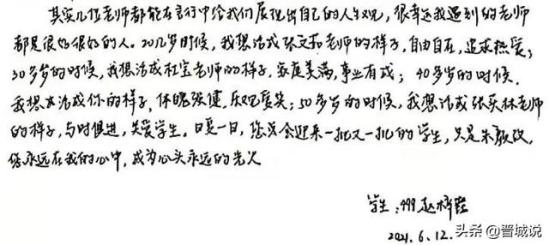 其实几位老师都能在言行中给我们展现出自己的人生观，很幸运我遇到的老师
都是很好很好的人。20几岁时候，我想活成张文和老师的样子，自由自在，追求热爱；
30多岁的时候，我想活成杜宝老师的样子，家庭美满，事业有成；40多岁的时候，
我想要活成你的样子，体魄强健，乐观爱笑；50多岁的时候，我想活成张买林老师
的样子，与时俱进，关爱学生。日复一日，您总会迎来一批又一批的学生，只是朱颜改，
您永远在我的心中，成为心头永远的光火
学生：499 赵
2021.6.12.
头条@晋城说